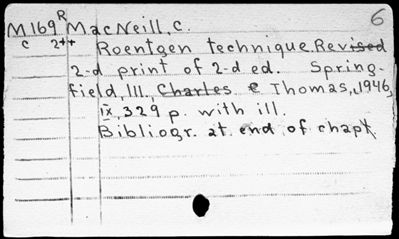 6
M169 R MacNeill, C.
c 2++ Roentgen technique. Revised
2-d print of 2-d ed. Spring-
field, Ill., Charles C Thomas, 1946,
ix, 329 p. with ill.
Bibliogr. at end of chapt.